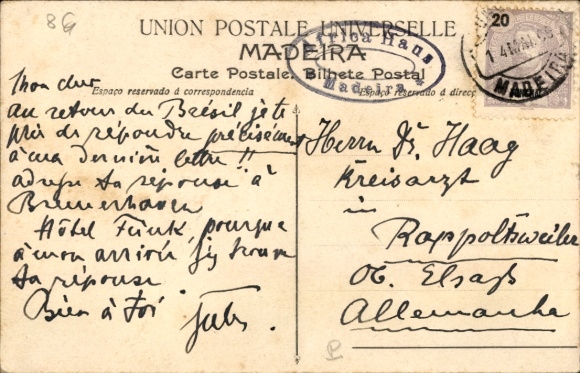 8G
UNION POSTALE UNIVERSELLE
MADEIRA
Carte Postale. Bilhete Postal
Espaço reservado á correspondencia
Espaço reservado á direcç
Africa Haus
Madeira
20
14 MAI
MADEIRA
Mon cher
au retour du Brésil je te
prie de répondre précisément
à ma dernière lettre !!
adresse ta réponse à
Bremerhaven
Hôtel Fünk, pourque
à mon arrivée j'y trouve
ta réponse.
Bien à toi
Jules.
Herrn Dr. Haag
Kreisarzt
in
Rappoltsweiler
Ob. Elsaß
Allemanha